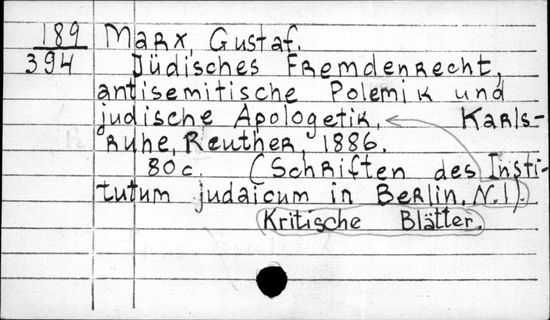 189 Marx, Gustaf.
394 Jüdisches Fremdenrecht,
antisemitische Polemik und
judische Apologetik. Karls-
ruhe, Reuther, 1886.
80 c. (Schriften des Insti-
tutum judaicum in Berlin. N.1).
Kritische Blätter.